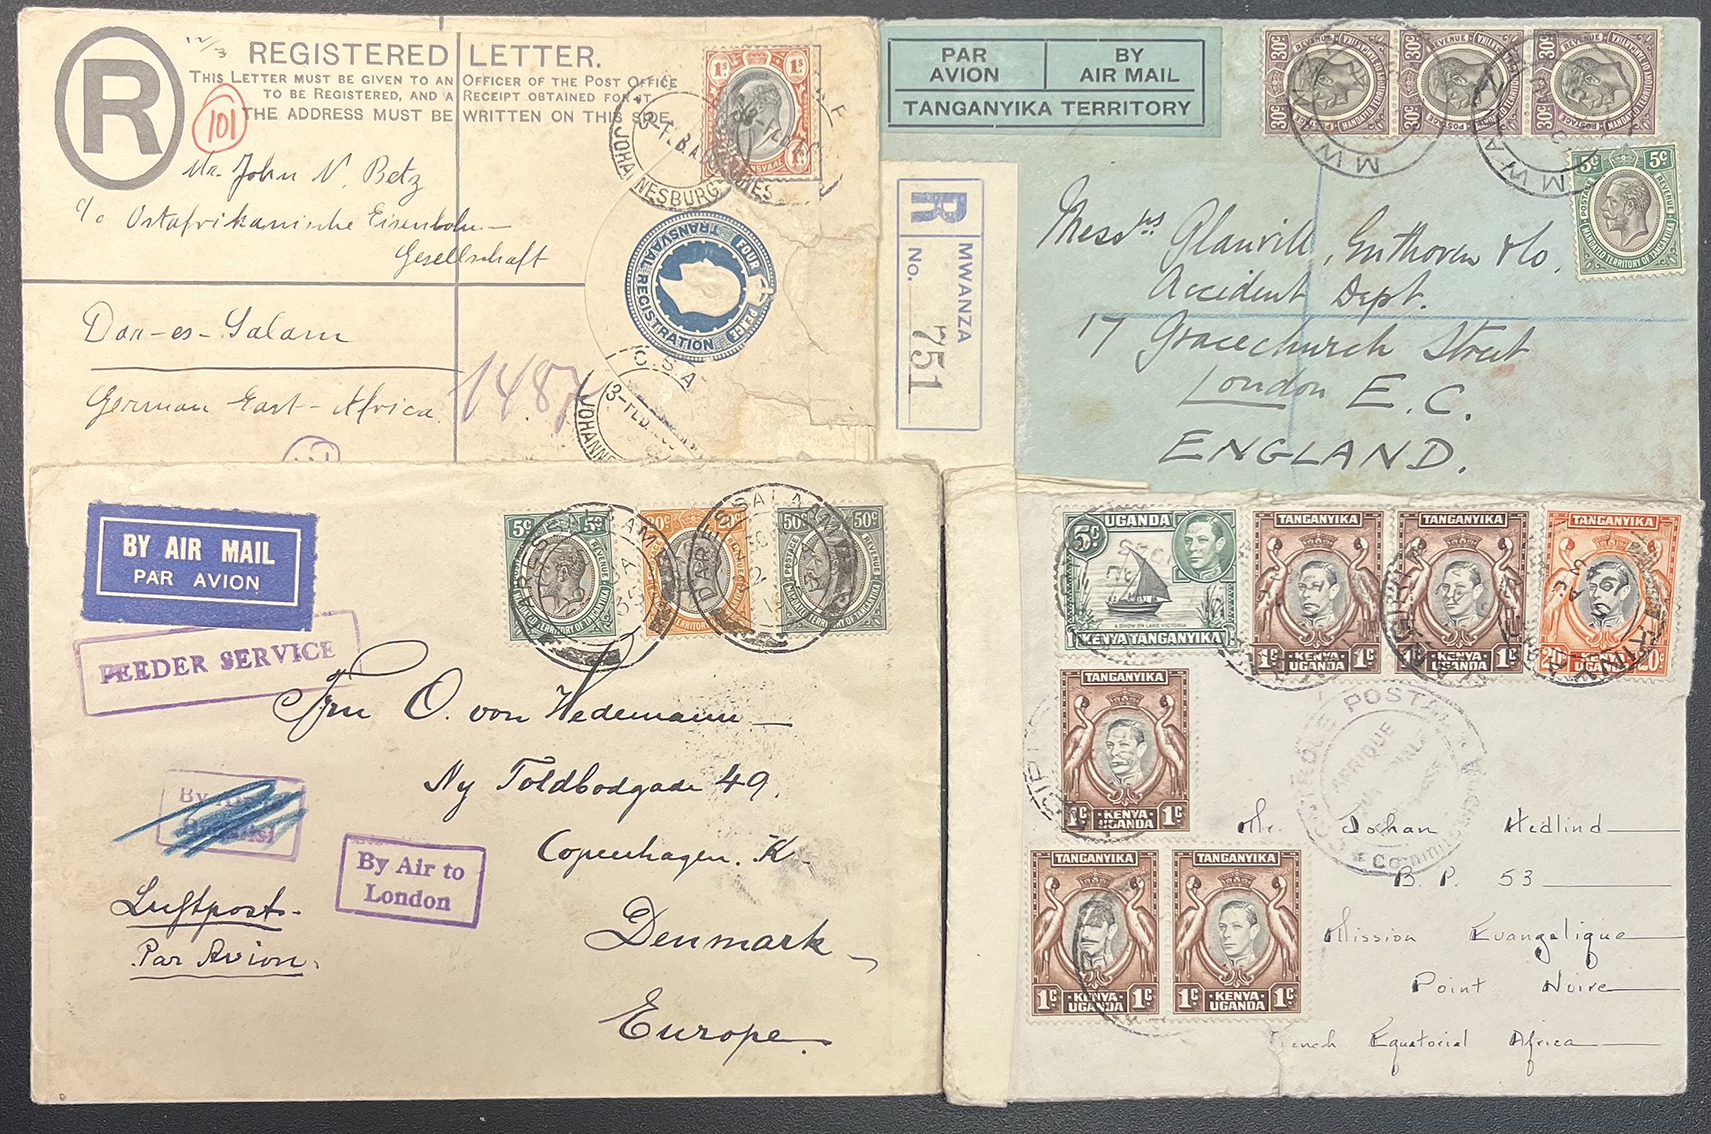 R
12/3
REGISTERED LETTER.
THIS LETTER MUST BE GIVEN TO AN OFFICER OF THE POST OFFICE
TO BE REGISTERED, AND A RECEIPT OBTAINED FOR IT.
THE ADDRESS MUST BE WRITTEN ON THIS SIDE.
101
Mr. John N. Betz
c/o Ostafrikanische Eisenbahn-
Gesellschaft
Dar-es-Salam
German East-Africa
1487
1s 1s
POSTAGE
TRANSVAAL
JOHANNESBURG
TRANSVAAL REGISTRATION
FOUR PENCE
C.S.A
3-FEB
JOHANNES
PAR AVION
BY AIR MAIL
TANGANYIKA TERRITORY
R
MWANZA
No. 751
30c REVENUE
30c POSTAGE
30c REVENUE
30c POSTAGE
30c REVENUE
30c POSTAGE
MWANZA
MWANZA
5c 5c
POSTAGE REVENUE
MANDATED TERRITORY OF TANGANYIKA
Messrs Glanvill, Enthoven & Co,
Accident Dept.
17 Gracechurch Street
London E.C.
ENGLAND.
BY AIR MAIL
PAR AVION
FEEDER SERVICE
5c 5c
MANDATED TERRITORY OF TANGANYIKA
20c 20c
50c 50c
POSTAGE REVENUE
MANDATED TERRITORY OF TANGANYIKA
DAR ES SALAAM
Frn O. von Wedemann
Ny Toldbodgade 49.
Copenhagen. K.
Denmark
Europe.
By Air to
London
Luftpost-
Par Avion.
5c UGANDA
A DHOW ON LAKE VICTORIA
KENYA TANGANYIKA
TANGANYIKA
1c KENYA UGANDA 1c
TANGANYIKA
1c KENYA UGANDA 1c
TANGANYIKA
20c KENYA UGANDA 20c
TANGANYIKA
1c KENYA UGANDA 1c
TANGANYIKA
1c KENYA UGANDA 1c
TANGANYIKA
1c KENYA UGANDA 1c
POSTAL
AFRIQUE
Commission
Mr. Johan Hedlind
B. P. 53
Mission Evangelique
Point Noire
French Equatorial Africa